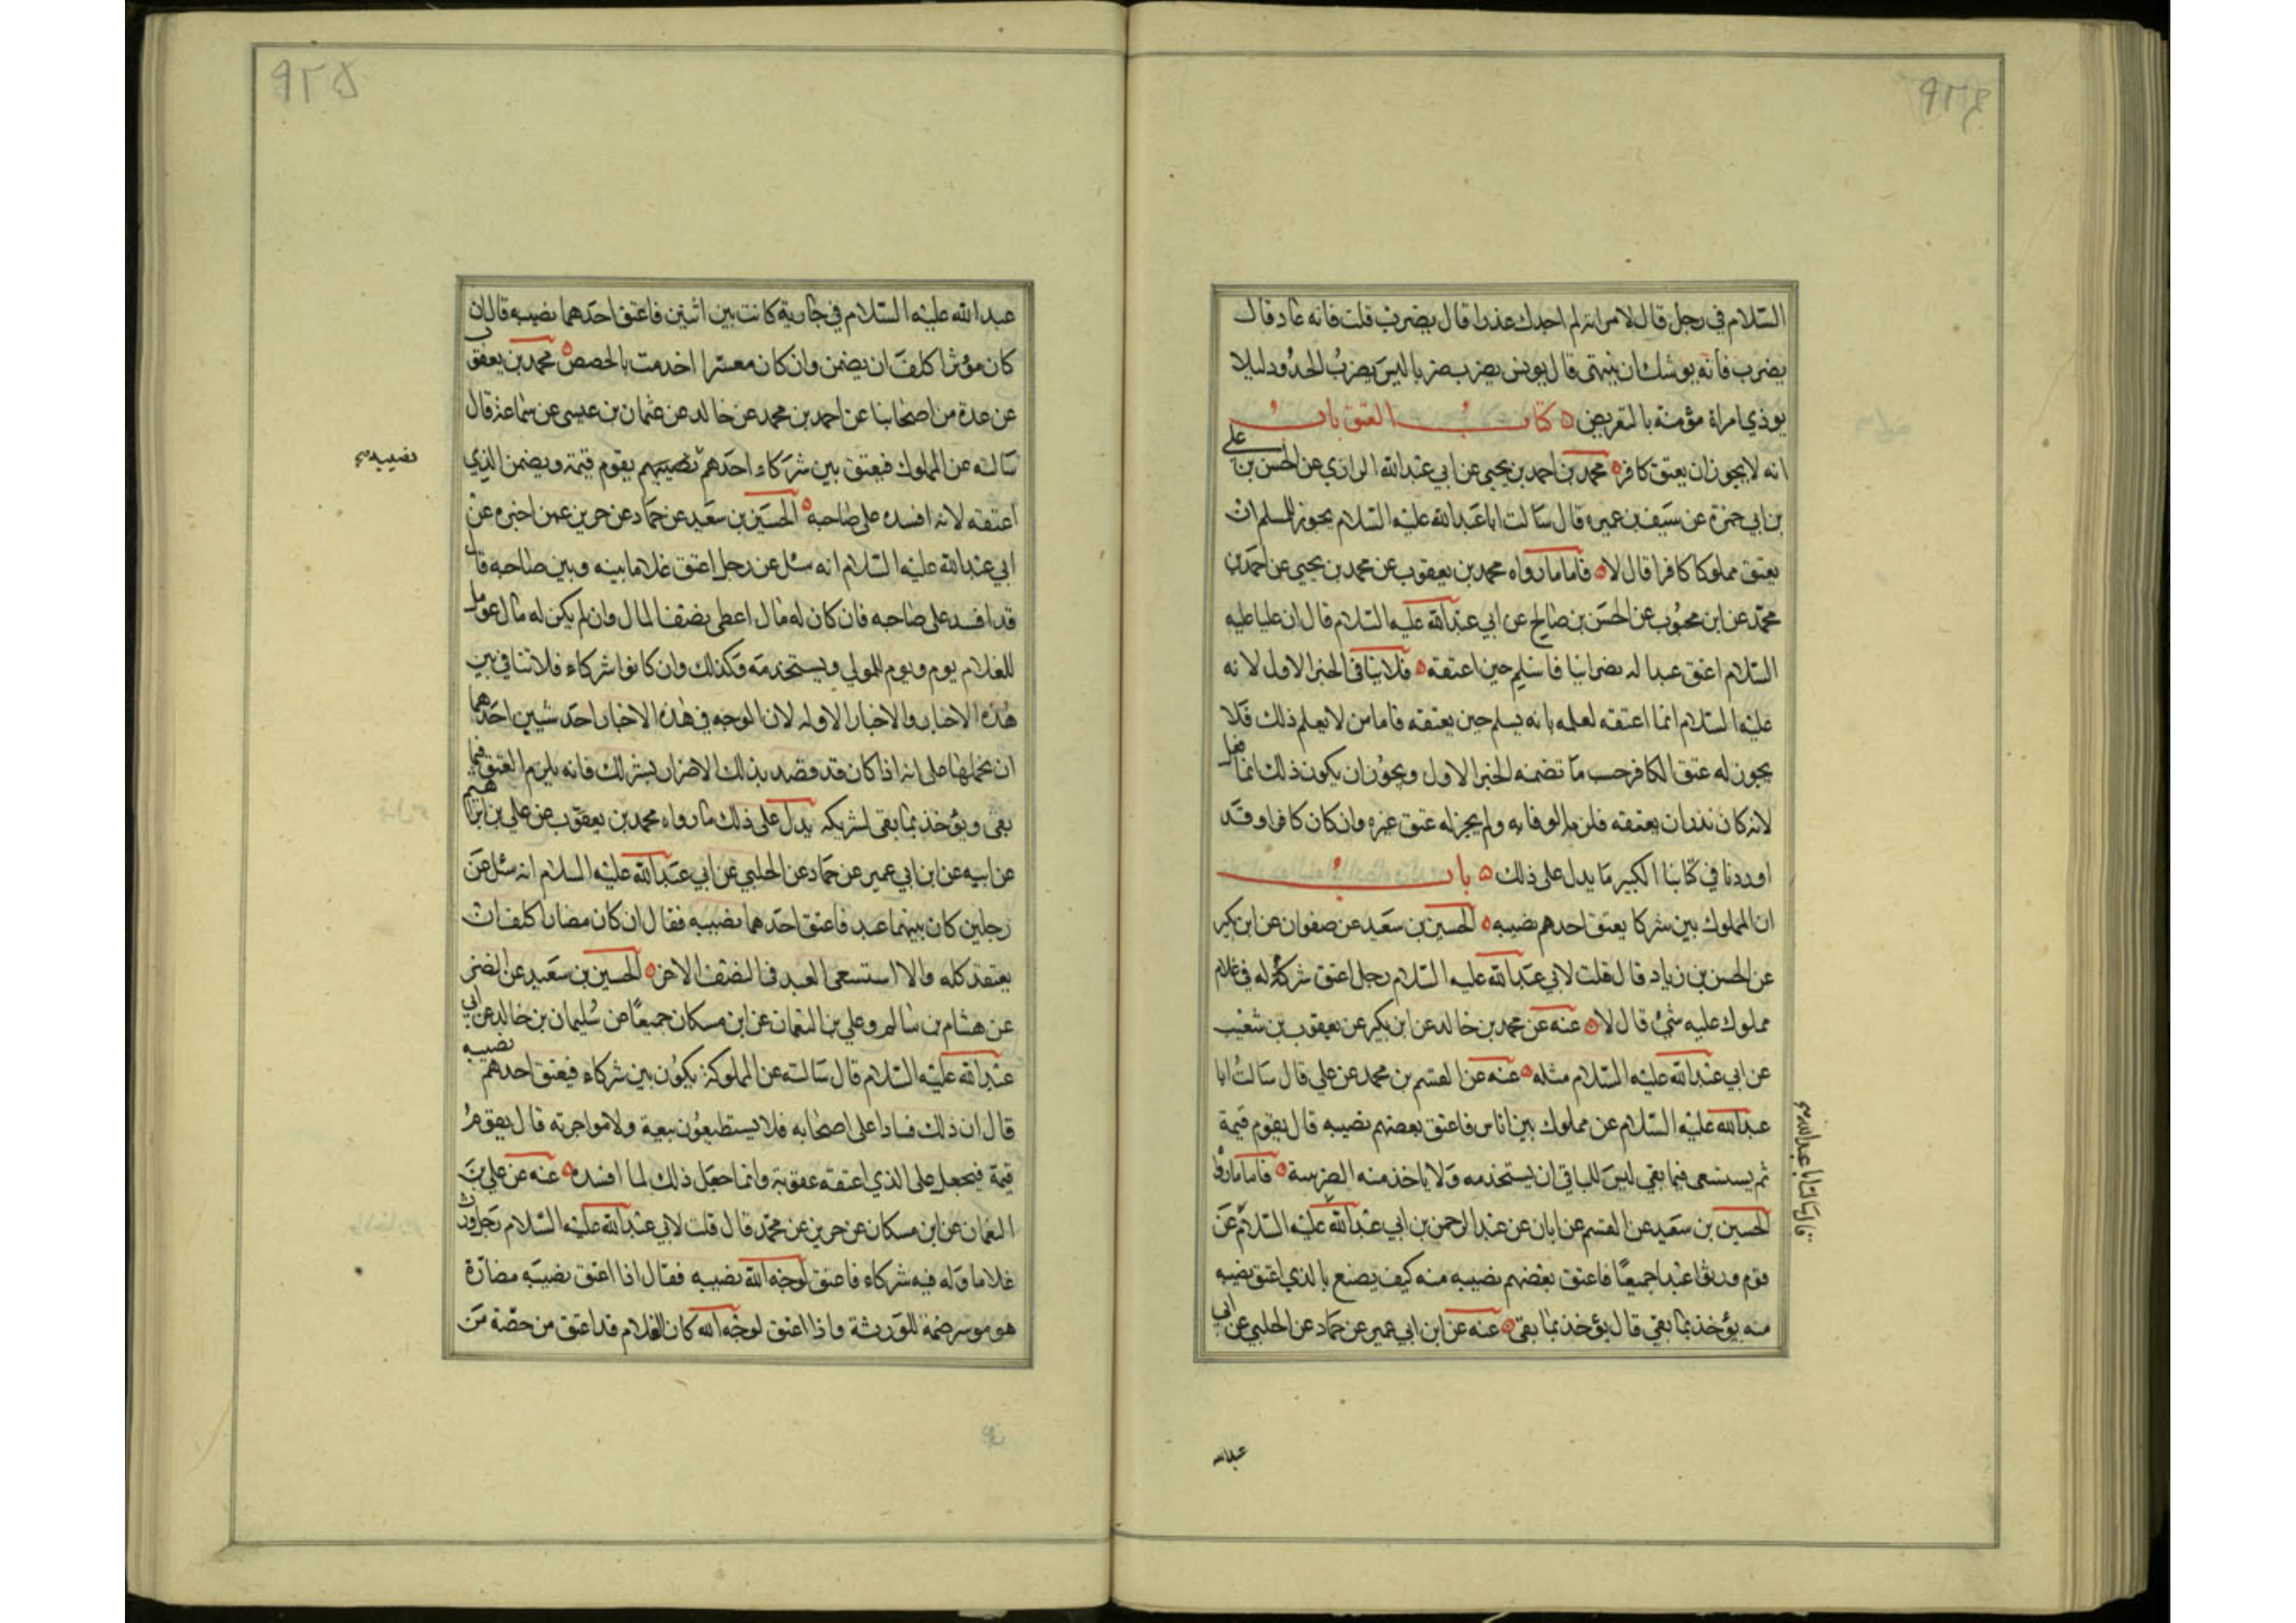 ٩٢٤
السلام في رجل قال لامراته لم اجدك عذرا قال يضرب قلت فانه عاد قال
يضرب فانه يوشك ان ينتهى قال يونس يضرب ضربا ليس يضرب الحدود ليلا
يوذي امراة مؤمنة بالتعريض كتاب العتق باب
انه لا يجوز ان يعتق كافر محمد بن احمد بن يحيى عن ابي عبد الله الرازي عن الحسن بن علي
بن ابي حمزة عن سيف بن عميره قال سالت ابا عبد الله عليه السلام يجوز للمسلم ان
يعتق مملوكا كافرا قال لا فاما ما رواه محمد بن يعقوب عن محمد بن يحيى عن احمد بن
محمد عن ابن محبوب عن الحسن بن صالح عن ابي عبد الله عليه السلام قال ان عليا عليه
السلام اعتق عبدا له نصرانيا فاسلم حين اعتقه فلا ينافى الخبر الاول لانه
عليه السلام انما اعتقه لعلمه بانه يسلم حين يعتقه فاما من لا يعلم ذلك فلا
يجوز له عتق الكافر حسب ما تضمنه الخبر الاول ويجوز ان يكون ذلك انما فعل
لانه كان نذر ان يعتقه فلزمه الوفا به ولم يجز له عتق غيره وان كان كافرا وقد
اوردنا في كتابنا الكبير ما يدل على ذلك باب
ان المملوك بين شركا يعتق احدهم نصيبه الحسين بن سعيد عن صفوان عن ابن بكير
عن الحسن بن زياد قال قلت لابي عبد الله عليه السلام رجل اعتق شركا له في غلام
مملوك عليه شئ قال لا عنه عن محمد بن خالد عن ابن بكير عن يعقوب بن شعيب
عن ابي عبد الله عليه السلام مثله عنه عن القسم بن محمد عن علي قال سالت ابا
عبد الله عليه السلام عن مملوك بين اناس فاعتق بعضهم نصيبه قال يقوم قيمة
ثم يستسعى فيما بقي ليس للباقي ان يستخدمه ولا ياخذ منه الضريبة فاما ما رواه
الحسين بن سعيد عن القسم عن ابان عن عبد الرحمن بن ابي عبد الله عليه السلام عن
قوم ورثوا عبدا جميعا فاعتق بعضهم نصيبه منه كيف يصنع بالذي اعتق نصيبه
منه يؤخذ بما بقي قال يؤخذ بما بقى عنه عن ابن ابي عمير عن حماد عن الحلبي عن ابي
قال سالت ابا عبد الله
عبدالله
٩٢٥
عبد الله عليه السلام في جارية كانت بين اثنين فاعتق احدهما نصيبه قال ان
كان موسرا كلف ان يضمن وان كان معسرا اخدمت بالحصص محمد بن يعقوب
عن عدة من اصحابنا عن احمد بن محمد عن خالد عن عثمان بن عيسى عن سماعة قال
سالته عن المملوك فيعتق بين شركاء احدهم نصيبهم يقوم قيمة ويضمن الذي
نصيبه
اعتقه لانه افسده على صاحبه الحسين بن سعيد عن حماد عن حريز عمن اخبره عن
ابي عبد الله عليه السلام انه سئل عن رجل اعتق غلاما بينه وبين صاحبه قال
قد افسد على صاحبه فان كان له مال اعطى نصف المال وان لم يكن له مال عومل
للغلام يوم ويوم للمولي ويستخدمه وكذلك وان كانوا شركاء فلا تنافى بين
هذه الاخبار والاخبار الاوله لان الوجه في هذه الاخبار احد شيين احدهما
ان نحملها على انه اذا كان قد قصد بذلك الاضرار بشريكه فانه يلزم العتق فيما
بقى ويؤخذ بما بقى لشريكه يدل على ذلك ما رواه محمد بن يعقوب عن علي بن ابراهيم
عن ابيه عن ابن ابي عمير عن حماد عن الحلبي عن ابي عبد الله عليه السلام انه سئل عن
رجلين كان بينهما عبد فاعتق احدهما نصيبه فقال ان كان مضارا كلف ان
يعتقه كله والا استسعى العبد في النصف الاخر الحسين بن سعيد عن النضر
عن هشام بن سالم وعلي بن النعمان عن ابن مسكان جميعا عن سليمان بن خالد عن ابي
عبد الله عليه السلام قال سالته عن المملوك يكون بين شركاء فيعتق احدهم نصيبه
قال ان ذلك فسادا على اصحابه فلا يستطيعون بيعه ولا مواجرته قال يقوم
قيمة فيجعل على الذي اعتقه عقوبة وانما جعل ذلك لما افسده عنه عن علي بن
النعمان عن ابن مسكان عن حريز عن محمد قال قلت لابي عبد الله عليه السلام رجل ورث
غلاما وله فيه شركاء فاعتق لوجه الله نصيبه فقال اذا اعتق نصيبه مضارة
هو موسر ضمنه للورثة واذا اعتق لوجه الله كان الغلام قد اعتق من حصة من